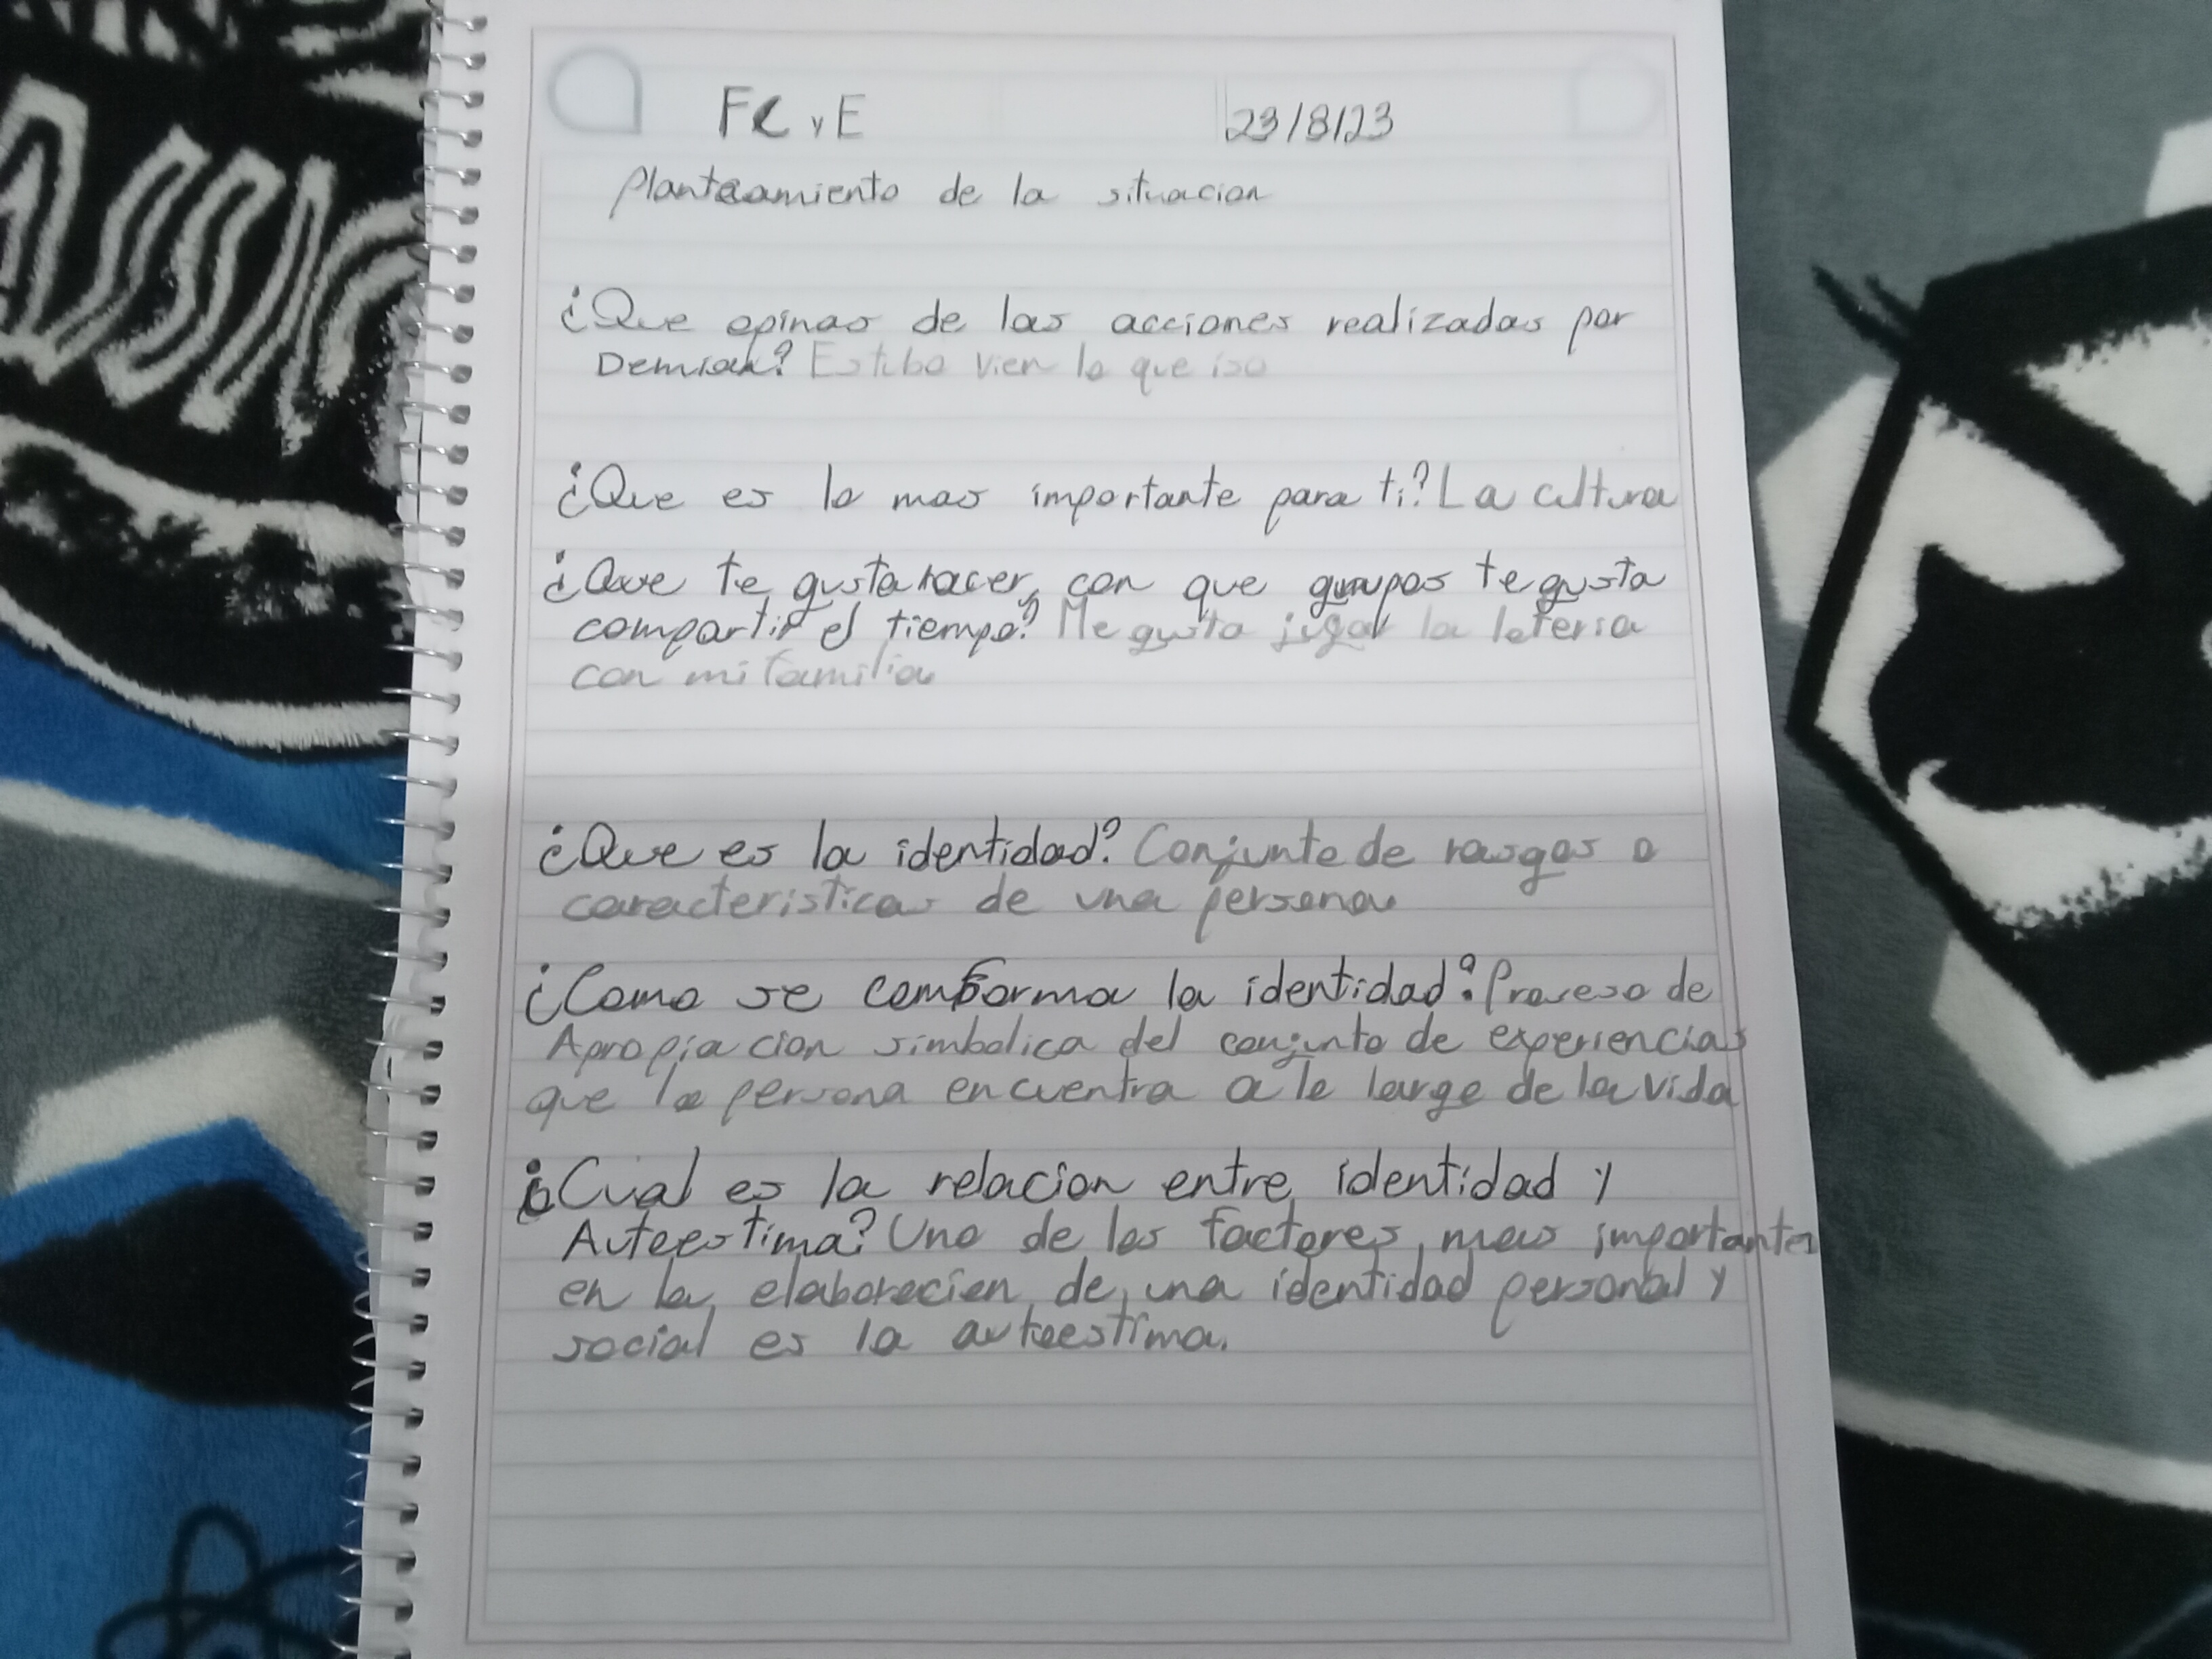 FC y E 23/8/23
Planteamiento de la situacion
¿Que opinas de las acciones realizadas por
Demian? Estubo vien lo que iso
¿Que es lo mas importante para ti? La cultura
¿Que te gusta hacer, con que grupos te gusta
compartir el tiempo? Me gusta jugar la loteria
con mi familia
¿Que es la identidad? Conjunto de rasgos o
caracteristicas de una persona
¿Como se comforma la identidad? Proseso de
Apropiacion simbolica del conjunto de experiencias
que la persona encuentra a lo largo de la vida
¿Cual es la relacion entre identidad y
Autoestima? Uno de los factores mas importantes
en la elaboracion de una identidad personal y
social es la autoestima.